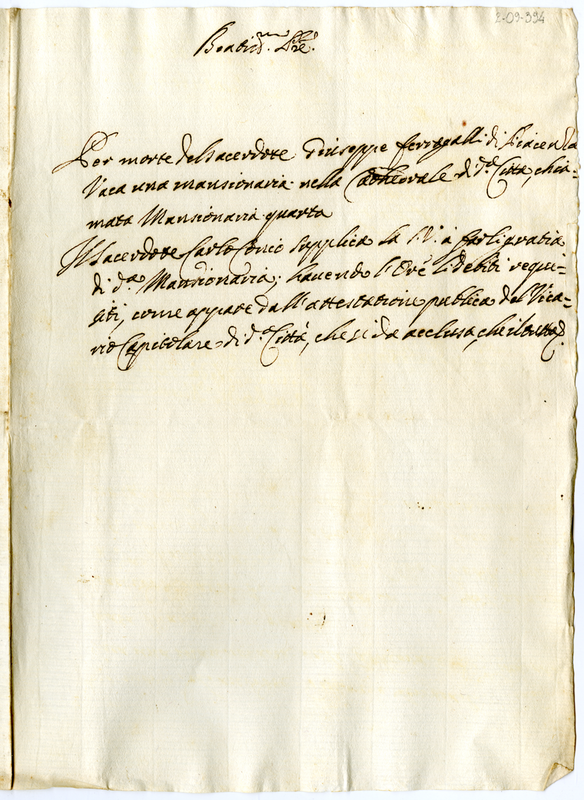 2-09-394
Beatis.mo P're.
Per morte del sacerdote Giuseppe ferrogalli di Piacenza
Vaca una mansionaria nella Cathedrale di d.a Città, chia-
mata Mansionaria quarta
Il sacerdote Carlo supplica la S.V. à farli gratia
di d.a Mansionaria, havendo l'Ore li debiti requi-
siti, come appare dall'attestatione publica del Vica-
rio Capitolare di d.a Città, che si da acclusa, che il tutto